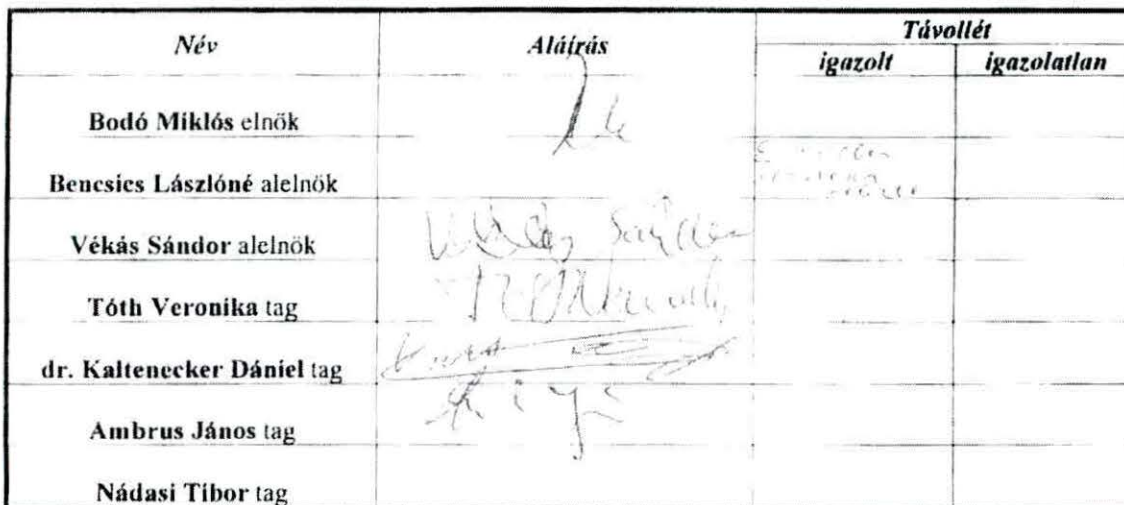 Név Aláírás Távollét
igazolt igazolatlan
Bodó Miklós elnök
Bencsics Lászlóné alelnök
Vékás Sándor alelnök Vékás Sándor
Tóth Veronika tag
dr. Kaltenecker Dániel tag
Ambrus János tag
Nádasi Tibor tag